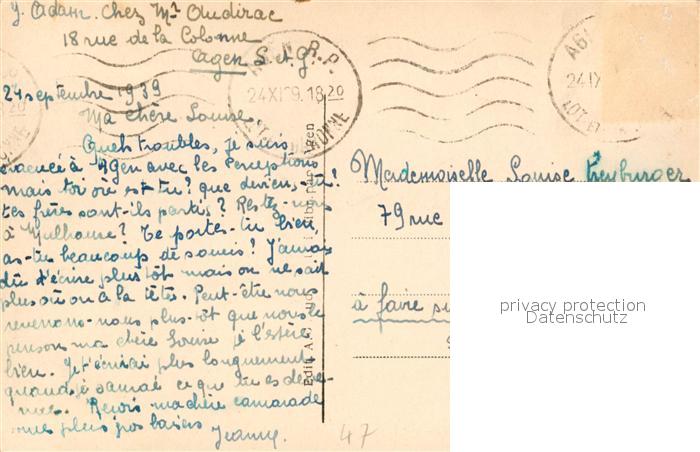 J. Adam. Chez Mr Oudirac
18 rue de la Colonne
Agen L et G.
24 septembre 1939
Ma chère Louise.
Quels troubles, je suis
évacuée à Agen avec les Perceptions
mais toi où es-tu? que deviens-tu?
tes frères sont-ils partis? Restez-vous
à Mulhouse? Te portes-tu bien,
as-tu beaucoup de soucis? J'aurais
dû t'écrire plus tôt mais on ne sait
plus où on a la tête. Peut-être nous
reverrons-nous plus tôt que nous le
pensons ma chère Louise je l'espère
bien. Je t'écrirai plus longuement
quand je saurai ce que tu es deve-
nue. Reçois ma chère camarade
mes plus bons baisers
Jeanne.
24 XI 39. 18 20
AG
24 IX
LOT-ET
Mademoiselle Louise
79 rue
à faire su
privacy protection
Datenschutz
Edit. A.
Agen
47